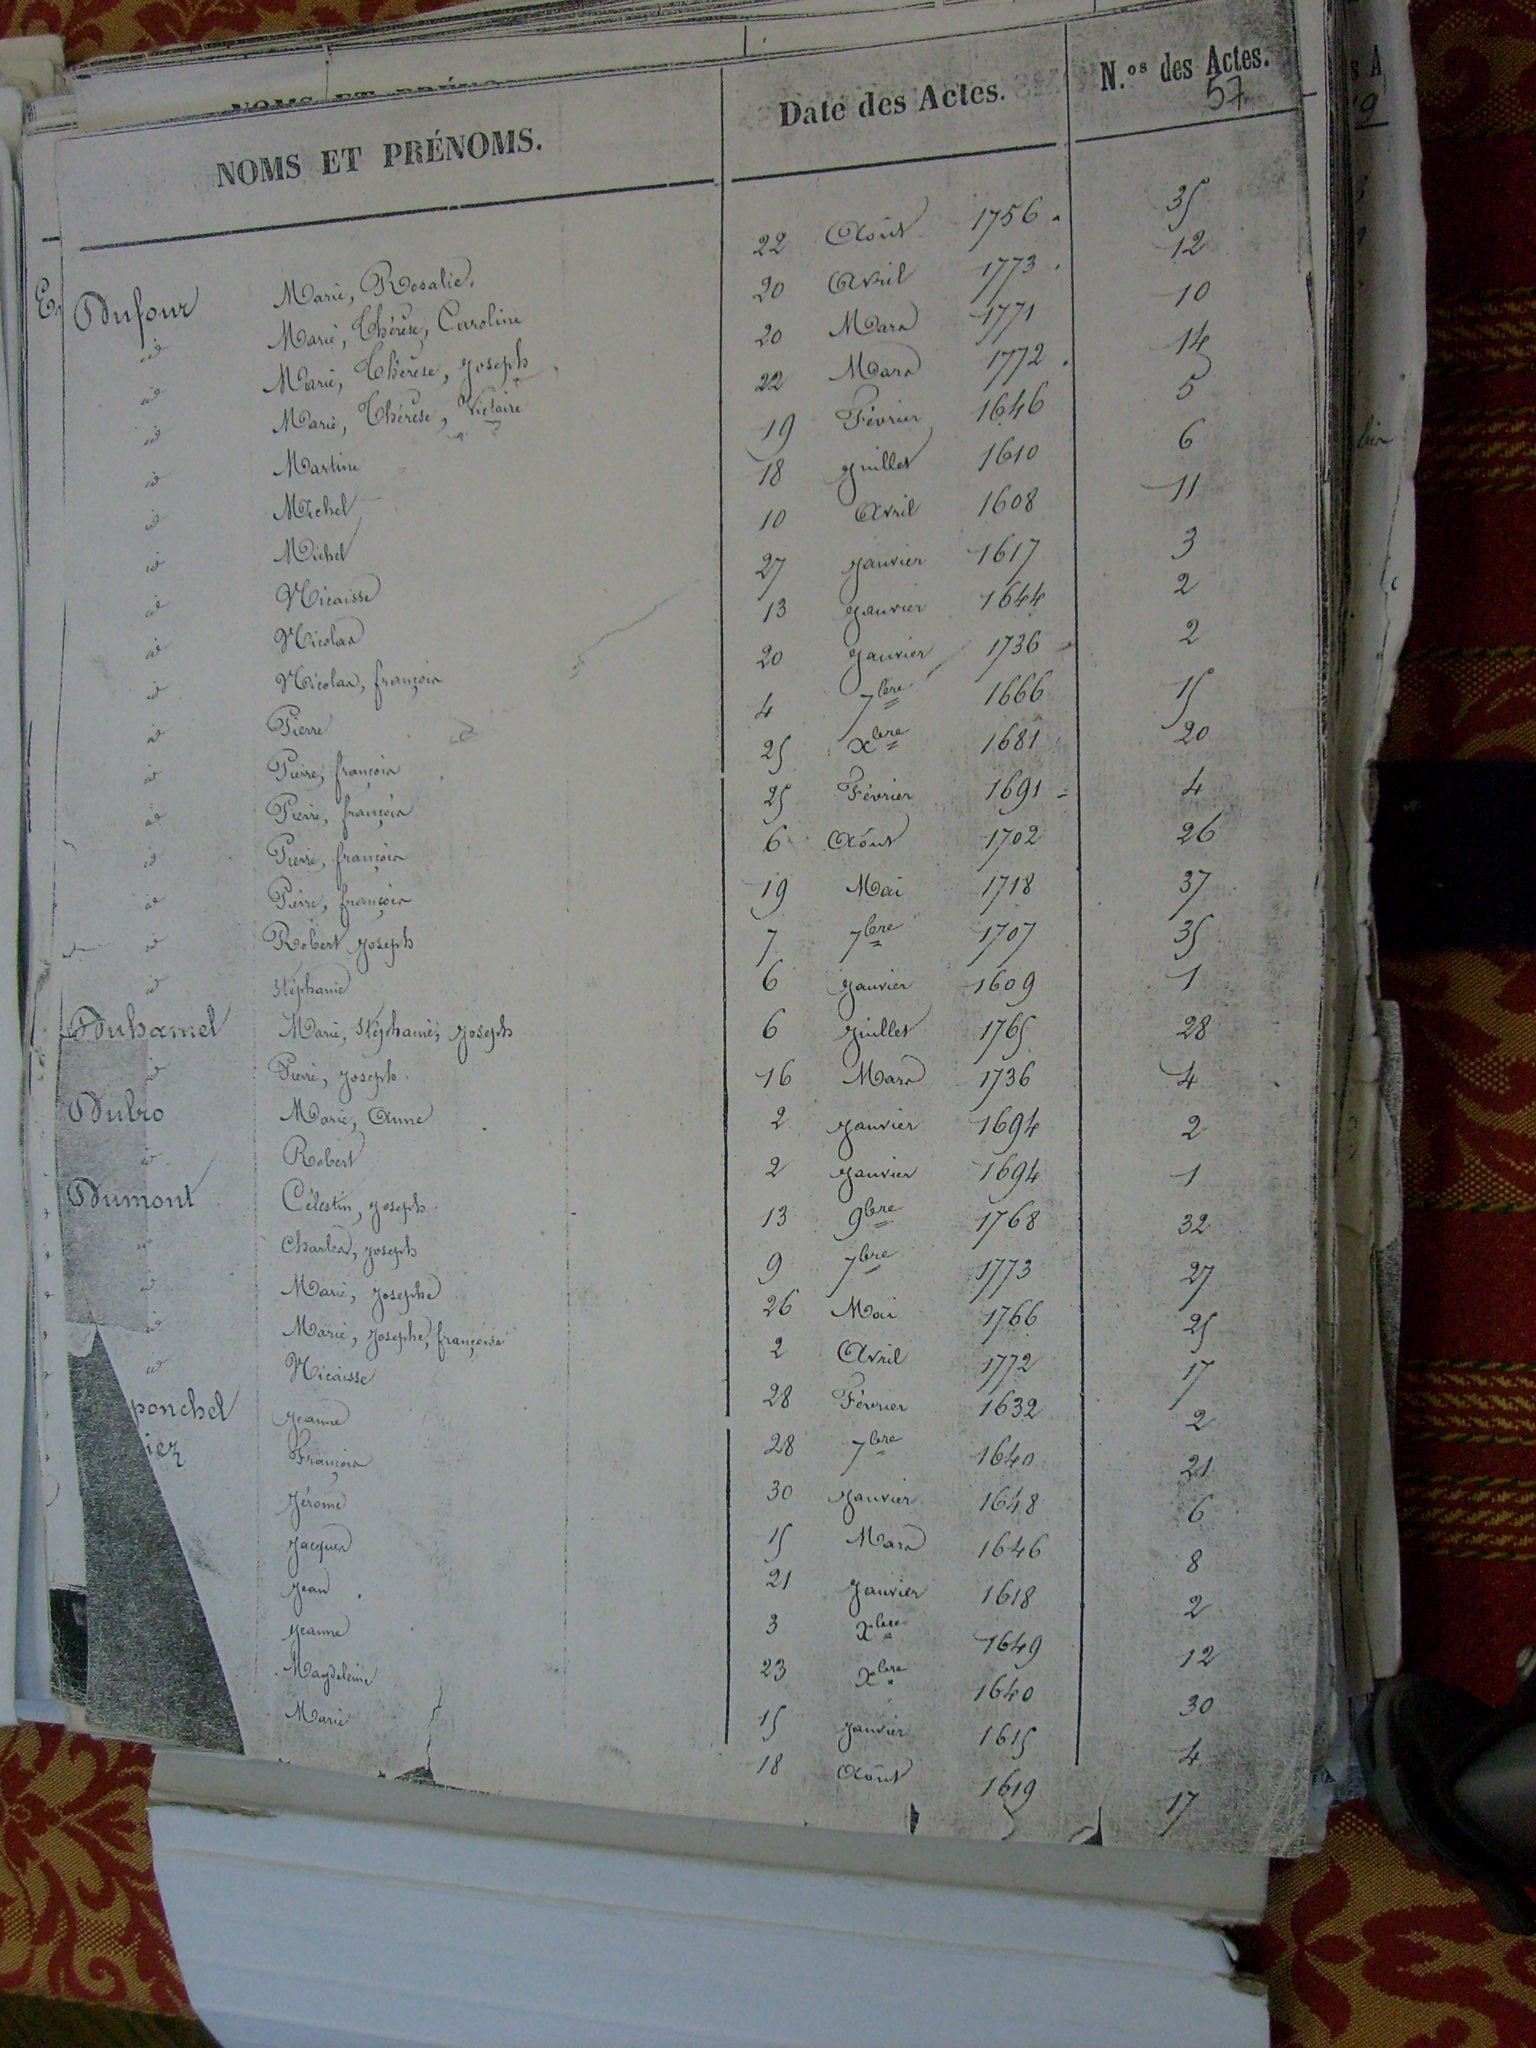 NOMS ET PRÉNOMS. Date des Actes. N.os des Actes.
57
Dufour Marie, Rosalie. 22 Août 1756 35
id Marie, Thérèse, Caroline 20 Avril 1773 12
id Marie, Thérèse, joseph 20 Mars 1771 10
id Marie, Thérèse, Victoire 22 Mars 1772 14
id Martine 19 Février 1646 5
id Michel 18 juillet 1610 6
id Michel 10 Avril 1608 11
id Nicaisse 27 janvier 1617 3
id Nicolas 13 janvier 1644 2
id Nicolas, françois 20 janvier 1736 2
id Pierre 4 7bre 1666 15
id Pierre, françois 25 xbre 1681 20
id Pierre, françois 25 Février 1691 4
id Pierre, françois 6 Août 1702 26
id Pierre, françois 19 Mai 1718 37
id Robert joseph 7 7bre 1707 35
id Stéphanie 6 janvier 1609 1
Duhamel Marie, Stéphanie, joseph 6 juillet 1765 28
id Pierre, joseph 16 Mars 1736 4
Dulro Marie, Anne 2 janvier 1694 2
id Robert 2 janvier 1694 1
Dumont Célestin, joseph 13 9bre 1768 32
id Charles, joseph 9 7bre 1773 27
id Marie, josephe 26 Mai 1766 25
id Marie, josephe, françoise 2 Avril 1772 17
id Nicaisse 28 Février 1632 2
ponchel jeanne 28 7bre 1640 21
iez François 30 janvier 1648 6
jérome 15 Mars 1646 8
jacques 21 janvier 1618 2
jean 3 xbre 1649 12
jeanne 23 xbre 1640 30
Magdeleine 15 janvier 1615 4
Marie 18 Août 1619 17